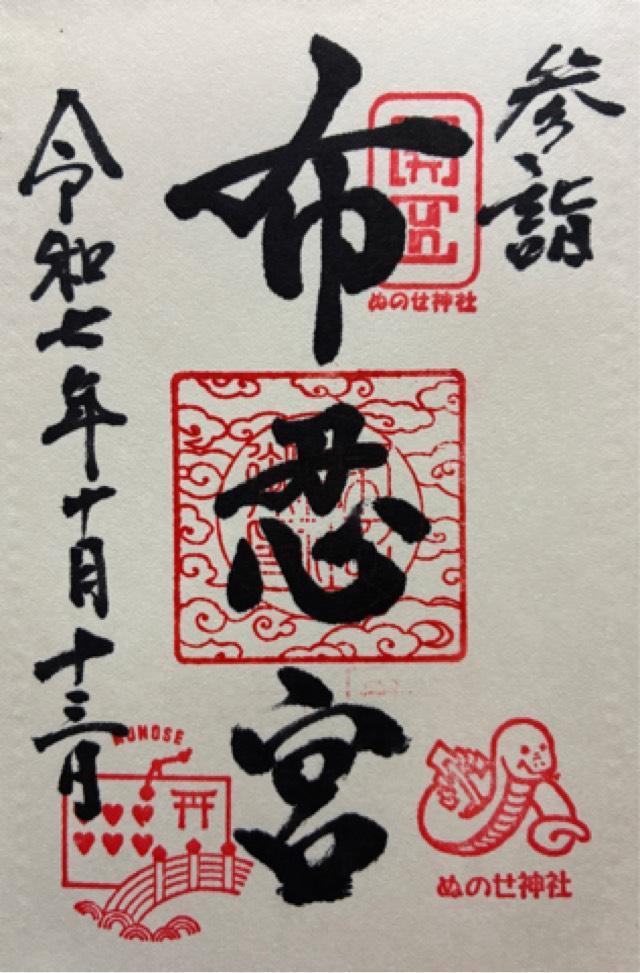 参詣
開運
ぬのせ神社
布忍宮
令和七年十月十三日
NUNOSE
ぬのせ神社